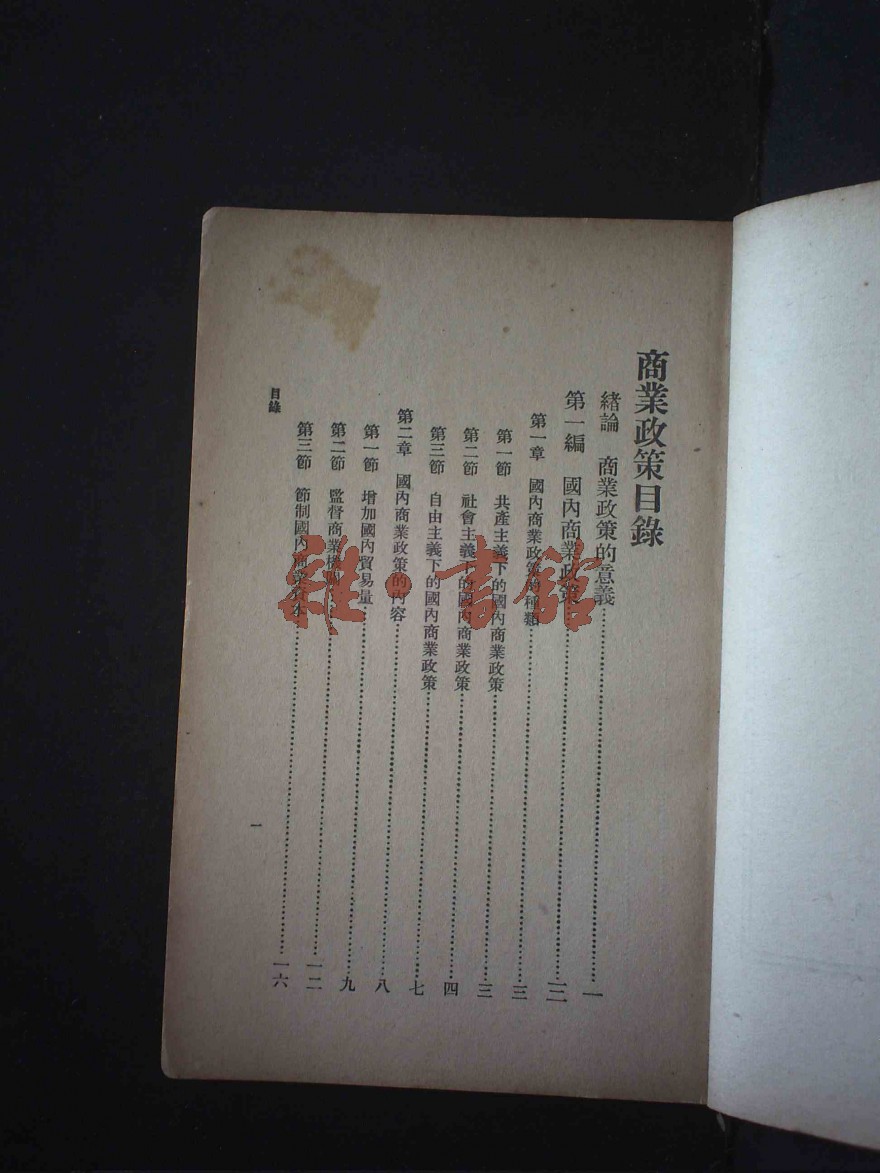 商業政策目錄
緒論 商業政策的意義 一
第一編 國內商業政策 三
第一章 國內商業政策的種類 三
第一節 共產主義下的國內商業政策 三
第二節 社會主義下的國內商業政策 四
第三節 自由主義下的國內商業政策 七
第二章 國內商業政策的內容 八
第一節 增加國內貿易量 九
第二節 監督商業機關 一二
第三節 節制國內商業資本 一六
目錄
一
雜·書館